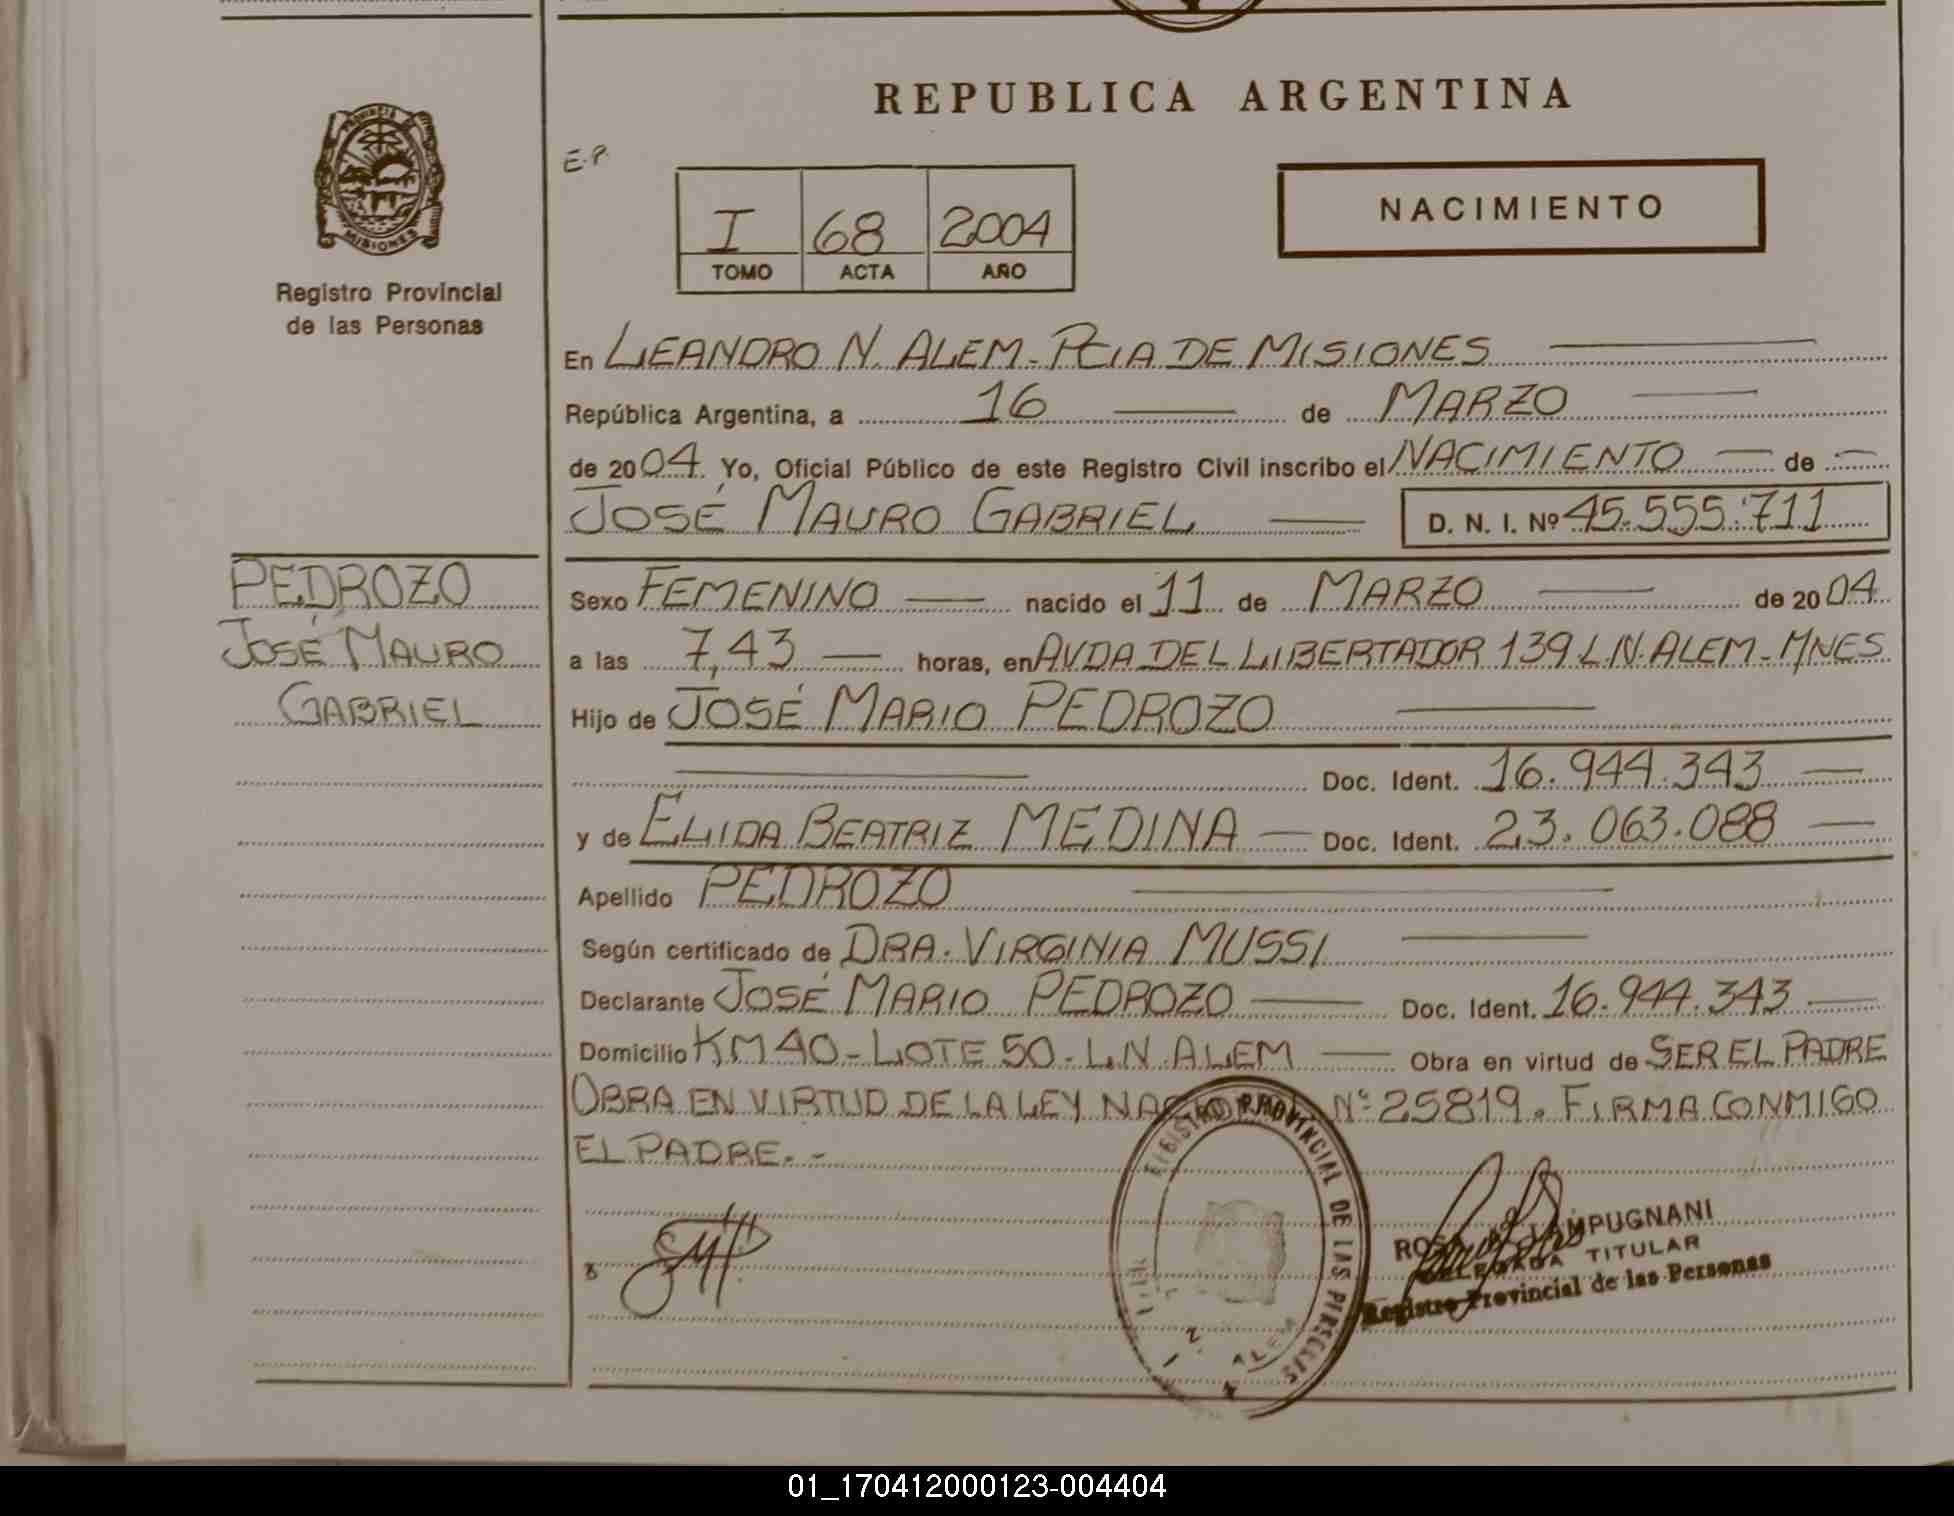 REPUBLICA ARGENTINA
PROVINCIA DE
MISIONES
Registro Provincial
de las Personas
E.P.
I 68 2004
TOMO ACTA AÑO
NACIMIENTO
En LEANDRO N. ALEM - PCIA DE MISIONES
República Argentina, a 16 de MARZO
de 2004. Yo, Oficial Público de este Registro Civil inscribo el NACIMIENTO de
JOSÉ MAURO GABRIEL D. N. I. Nº 45.555.711
PEDROZO
JOSÉ MAURO
GABRIEL
Sexo FEMENINO nacido el 11 de MARZO de 2004
a las 7,43 horas, en AVDA DEL LIBERTADOR 139 L.N. ALEM - MNES
Hijo de JOSÉ MARIO PEDROZO
Doc. Ident. 16.944.343
y de ELIDA BEATRIZ MEDINA Doc. Ident. 23.063.088
Apellido PEDROZO
Según certificado de DRA. VIRGINIA MUSSI
Declarante JOSÉ MARIO PEDROZO Doc. Ident. 16.944.343
Domicilio KM 40 - LOTE 50 - L.N. ALEM Obra en virtud de SER EL PADRE
OBRA EN VIRTUD DE LA LEY Nº 25819. FIRMA CONMIGO
EL PADRE. -
REGISTRO PROVINCIAL DE LAS PERSONAS
ALEM
LAMPUGNANI
DELEGADA TITULAR
Registro Provincial de las Personas
01_170412000123-004404